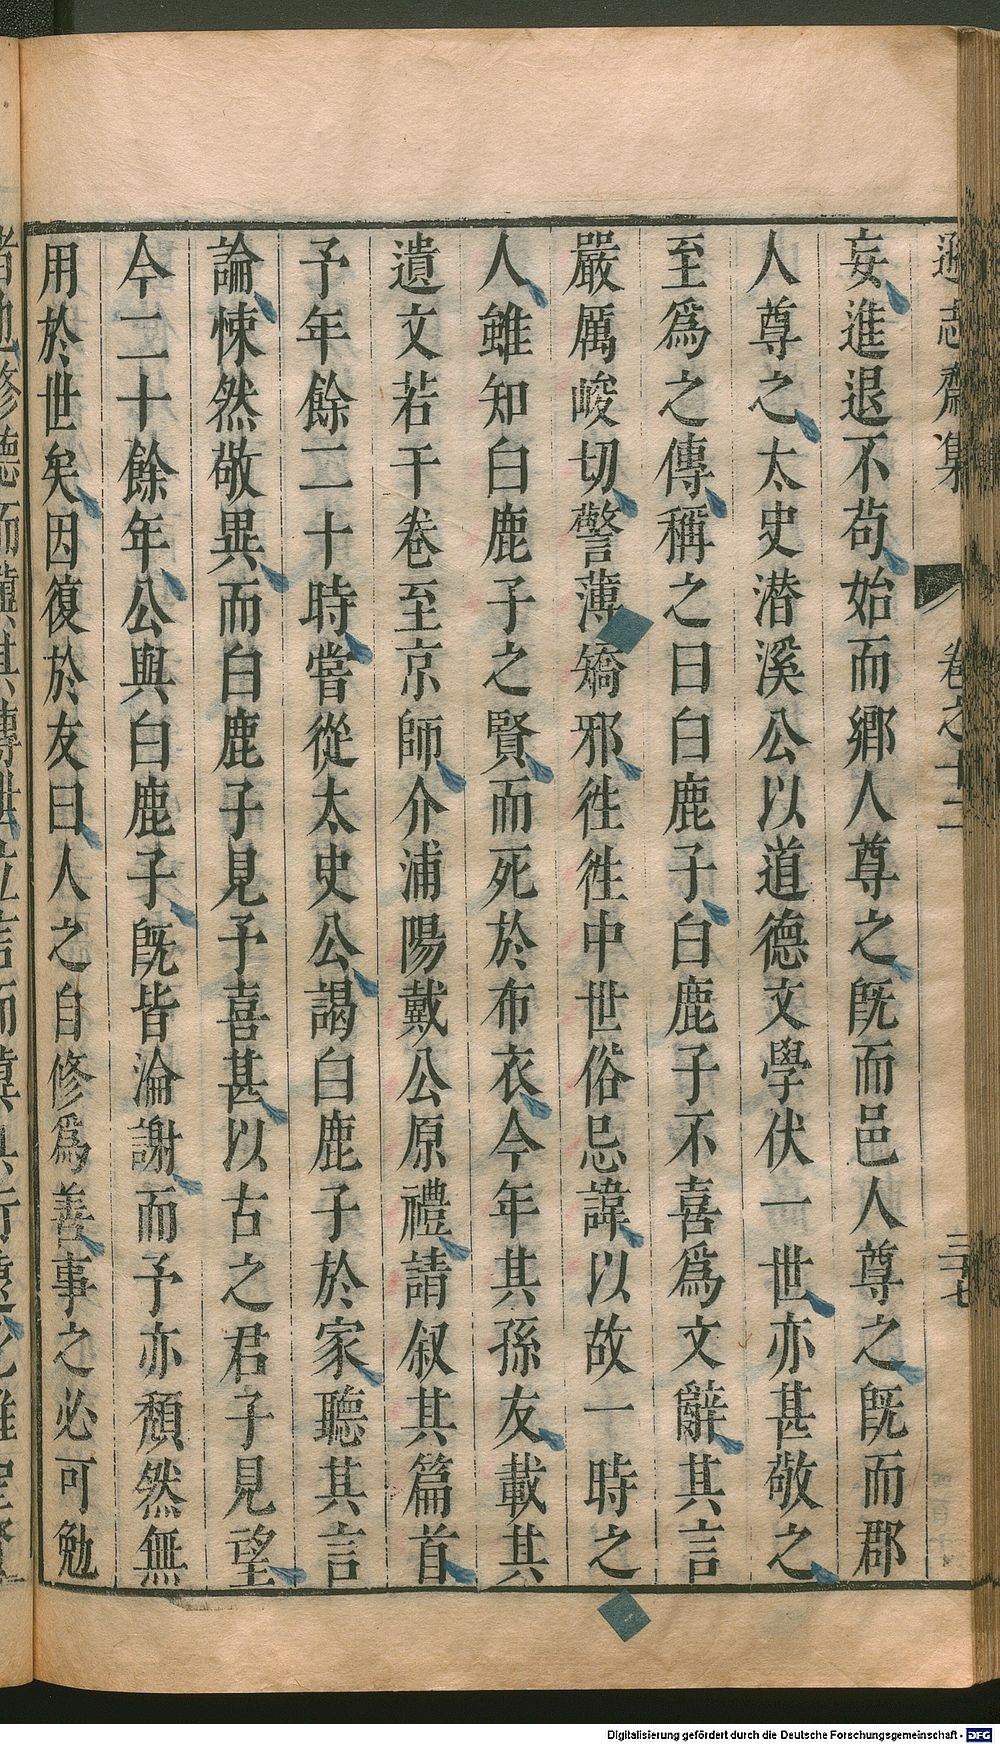 遜志齋集 卷之十二 三七
妄進退不苟始而鄉人尊之旣而邑人尊之旣而郡
人尊之太史潜溪公以道德文學伏一世亦甚敬之
至爲之傳稱之曰白鹿子白鹿子不喜爲文辭其言
嚴厲峻切警薄矯邪徃徃中世俗忌諱以故一時之
人雖知白鹿子之賢而死於布衣今年其孫友載其
遺文若干卷至京師介浦陽戴公原禮請叙其篇首
予年餘二十時嘗從太史公謁白鹿子於家聽其言
論悚然敬異而白鹿子見予喜甚以古之君子見望
今二十餘年公與白鹿子旣皆淪謝而予亦頹然無
用於世矣因復於友曰人之自修爲善事之必可勉
Digitalisierung gefördert durch die Deutsche Forschungsgemeinschaft - DFG